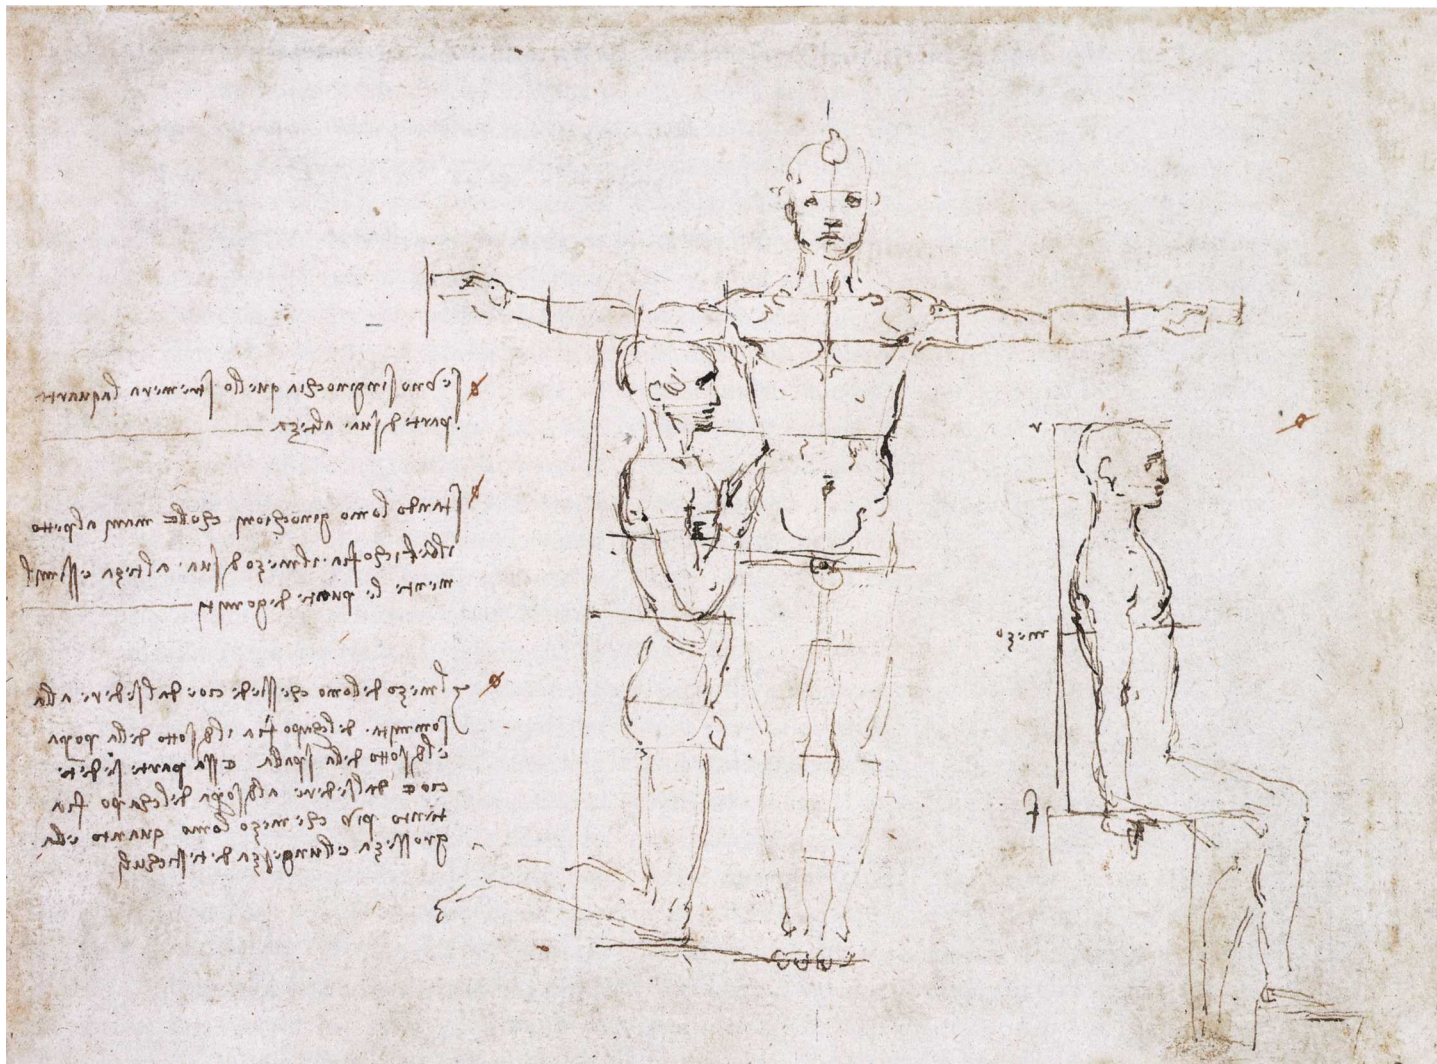 se luno singinochia quello stremera la quarta
parte di sua alteza
stando lomo ginochioni cholle mani al petto
il bellicho fia il mezo di sua alteza essimil
mente le punte de gomita
il mezo delomo che ssiede cioe dal sedere alla
sommita del chapo fia il di sotto della popa
el di sotto della spalla essa parte sedete
cioe dal sedere al di sopa del chapo fia
tanto piu che mezo lomo quanto e la
grosseza ellungeza de testichuli
mezo